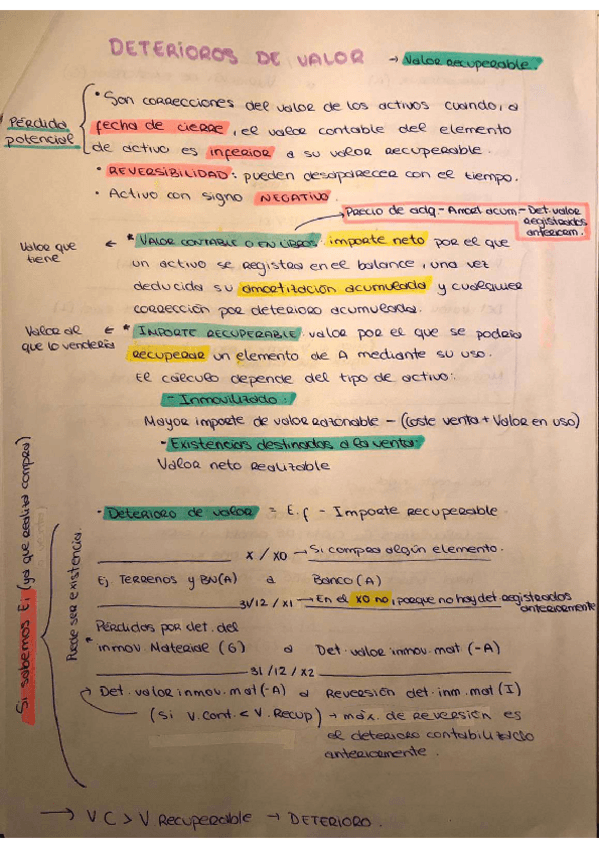 DETERIOROS DE VALOR → Valor recuperable.
Pérdida potencial
• Son correcciones del valor de los activos cuando, a
fecha de cierre, el valor contable del elemento
de activo es inferior a su valor recuperable.
• REVERSIBILIDAD: pueden desaparecer con el tiempo.
• Activo con signo NEGATIVO.
Precio de adq. - Amort acum - Det. valor
registrados
anteriorm.
Valor que
tiene
← * VALOR CONTABLE O EN LIBROS: importe neto por el que
un activo se registra en el balance, una vez
deducida su amortización acumulada y cualquier
corrección por deterioro acumulada.
Valor al
que lo vendería
← * IMPORTE RECUPERABLE: valor por el que se podría
recuperar un elemento de A mediante su uso.
El cálculo depende del tipo de activo:
- Inmovilizado:
Mayor importe de valor razonable - (coste venta + Valor en uso)
- Existencias destinadas a la venta:
Valor neto realizable
Si sabemos E; (ya que realiza compra)
Puede ser existencia.
• Deterioro de valor = E.f - Importe recuperable.
X / X0 → Si compra algún elemento.
Ej TERRENOS y BN (A) a Banco (A)
31/12 / X1 → En el X0 no, porque no hay det registrados
anteriormente
Pérdidas por det. del
* inmov. Material (G) a Det. valor inmov. mat (-A)
31 / 12 / X2
→ Det. valor inmov. mat (-A) a Reversión det. inm. mat (I)
(Si V. Cont. < V. Recup) → máx. de reversión es
el deterioro contabilizado
anteriormente.
→ VC > V Recuperable → DETERIORO.